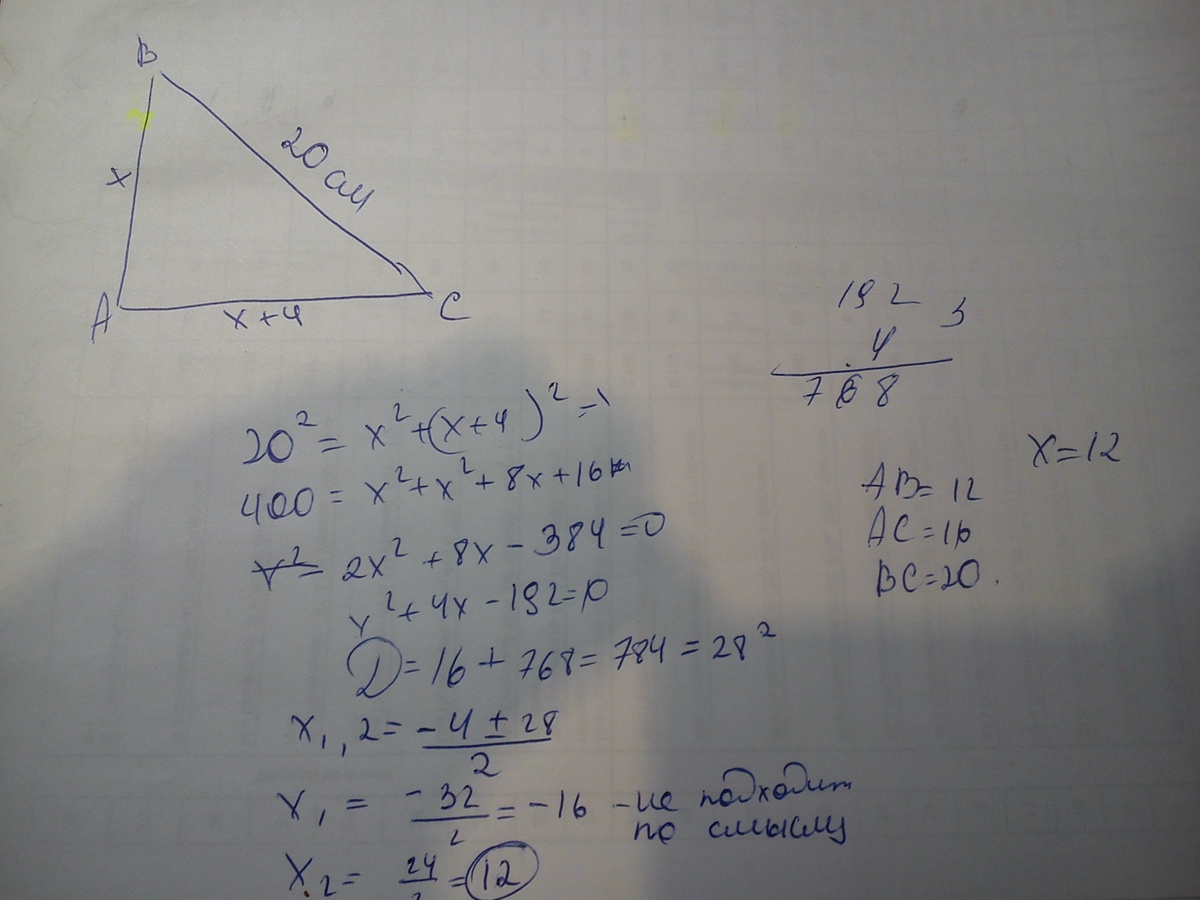 B
x
20 см
A
x+4
C
192
3
4
768
20² = x² + (x+4)² =
400 = x² + x² + 8x + 16
x² = 2x² + 8x - 384 = 0
x² + 4x - 192 = 0
D = 16 + 768 = 784 = 28²
x₁,₂ = -4 ± 28 / 2
x₁ = -32 / 2 = -16 - не подходит
по смыслу
x₂ = 24 / 2 = 12
x = 12
AB = 12
AC = 16
BC = 20.